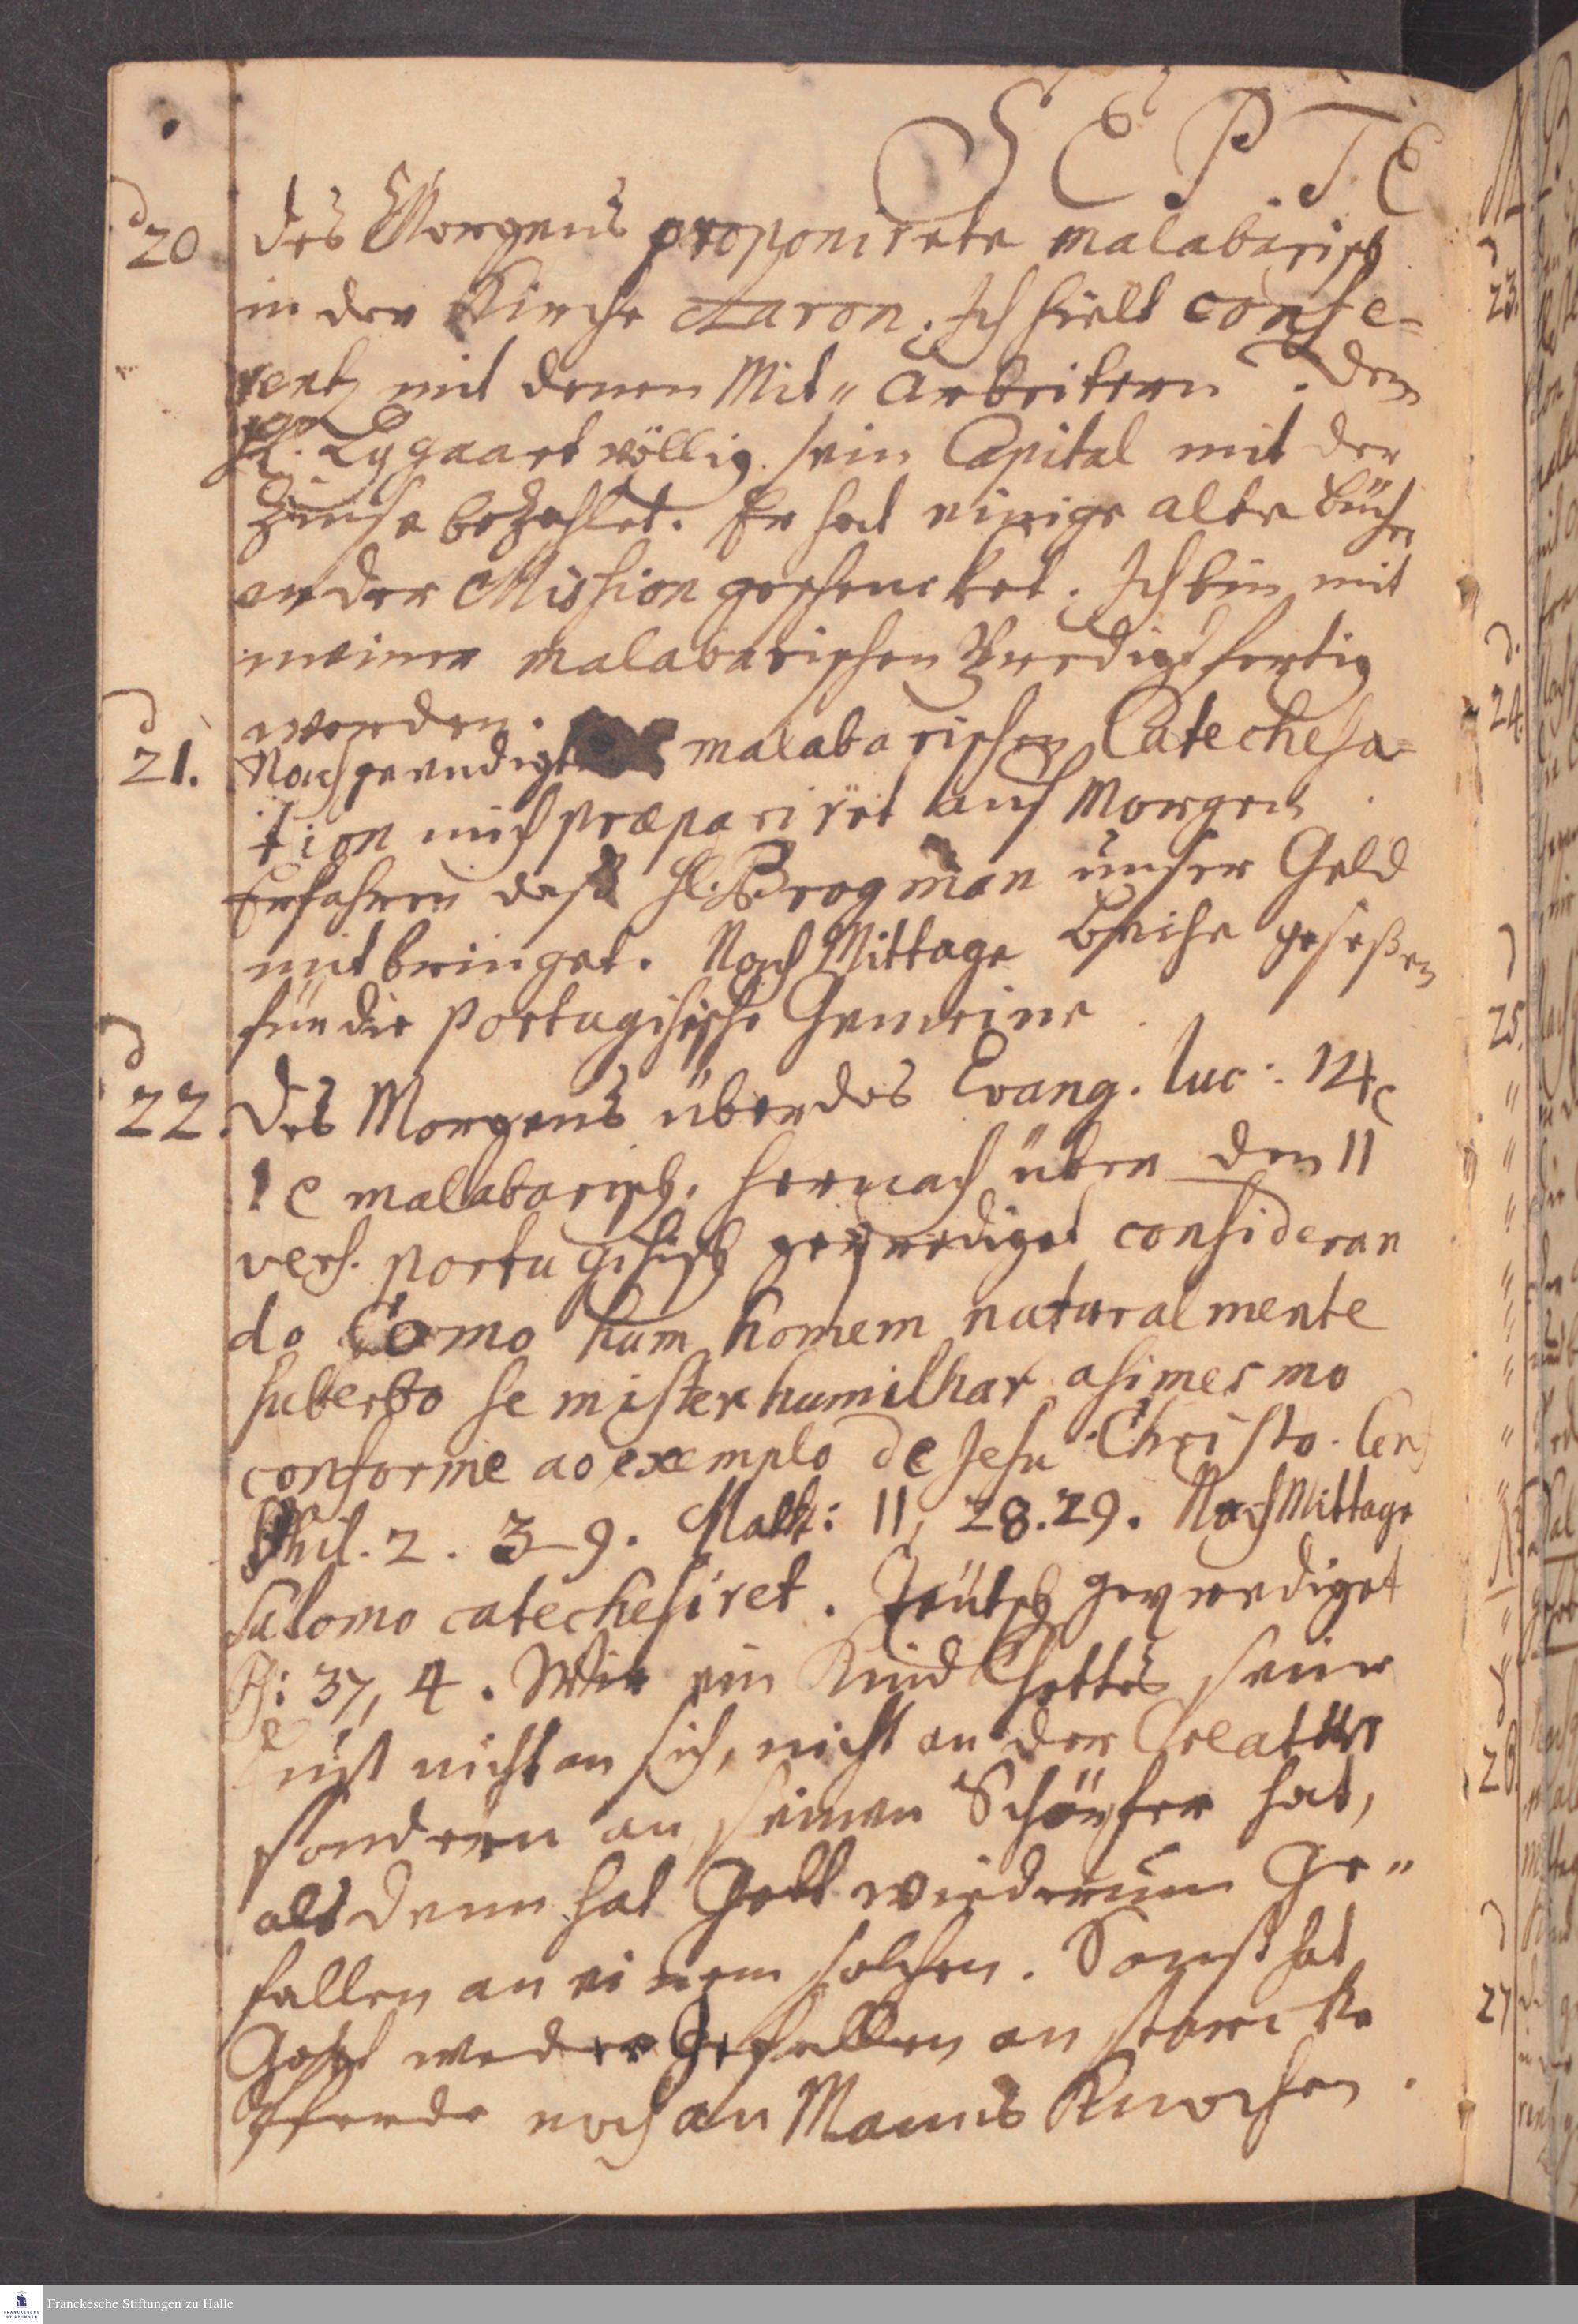 SEPTE
d 20 des Morgens proponirete malabarisch
in der Kirche Aaron. Ich hielt confe-
rentz mit denen Mit" Arbeitern. Dem
H. Lygaart völlig sein Capital mit der
Zinse bezahlet. Er hat einige alte Bücher
an der Mission geschencket. Ich bin mit
meiner malabarischen Predigt fertig
worden.
d 21. Nach geendigter malabarischen Catechesa-
tion mich præpariret auf Morgen
Erfahren daß H. Brogman unser Geld
mitbringet. Nach Mittage Beichte geseßen
für die Portugisische Gemeine
d 22. Des Morgens über das Evang. Luc: 14,
1 e malabarisch. hernach über den 11
vers. portugisisch geprediget consideran
do Como hum homem naturalmente
suberbo se mister humilhar asimesmo
conforme ao exemplo de Jesu Christo. Conf
Phil. 2. 3-9. Matth: 11, 28.29. Nach Mittage
Salomo catechesiret. Teütsch geprediget
Ps: 37, 4. Wie ein Kind Gottes seine
Lust nicht an sich, nicht an der Creatur
sondern an seinen Schöpfer hat,
als denn hat Gott wiederum Ge"
fallen an einem solchen. Sonst hat
Gott weder Gefallen an starcke
Pferde noch an Manns Knochen.
23.
d.
24.
25.
26.
27
Franckesche Stiftungen zu Halle